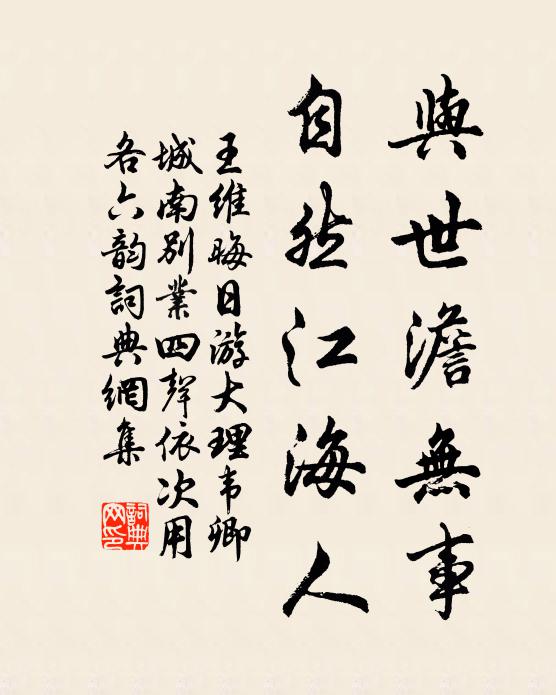 與世澹無事
自然江海人
王維晦日游大理韋卿
城南別業四聲依次用
各六韵詞典網集
詞典
网印